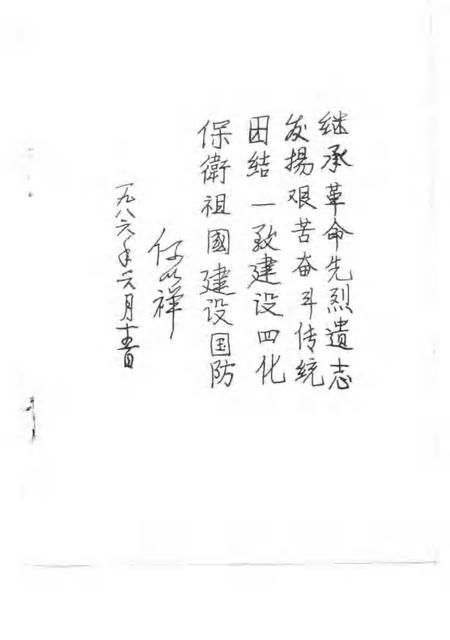 继承革命先烈遗志
发揚艰苦奋斗传统
团结一致建设四化
保衛祖國建设国防
祥
一九八六年六月十五日